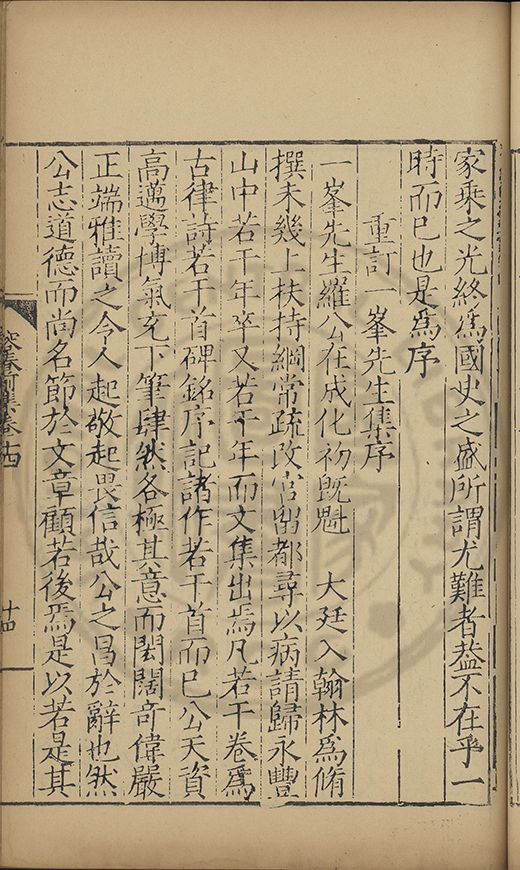 家乘之光終爲國史之盛所謂尤難者葢不在乎一
時而已也是爲序
重訂一峯先生集序
一峯先生羅公在成化初旣魁 大廷入翰林爲脩
撰未幾上扶持綱常疏改官留都尋以病請歸永豐
山中若干年卒又若干年而文集出焉凡若干卷爲
古律詩若干首碑銘序記諸作若干首而已公天資
高邁學博氣充下筆肆然各極其意而閎闊奇偉嚴
正端雅讀之令人起敬起畏信哉公之昌於辭也然
公志道德而尚名節於文章顧若後焉是以若是其
集卷十四
十四